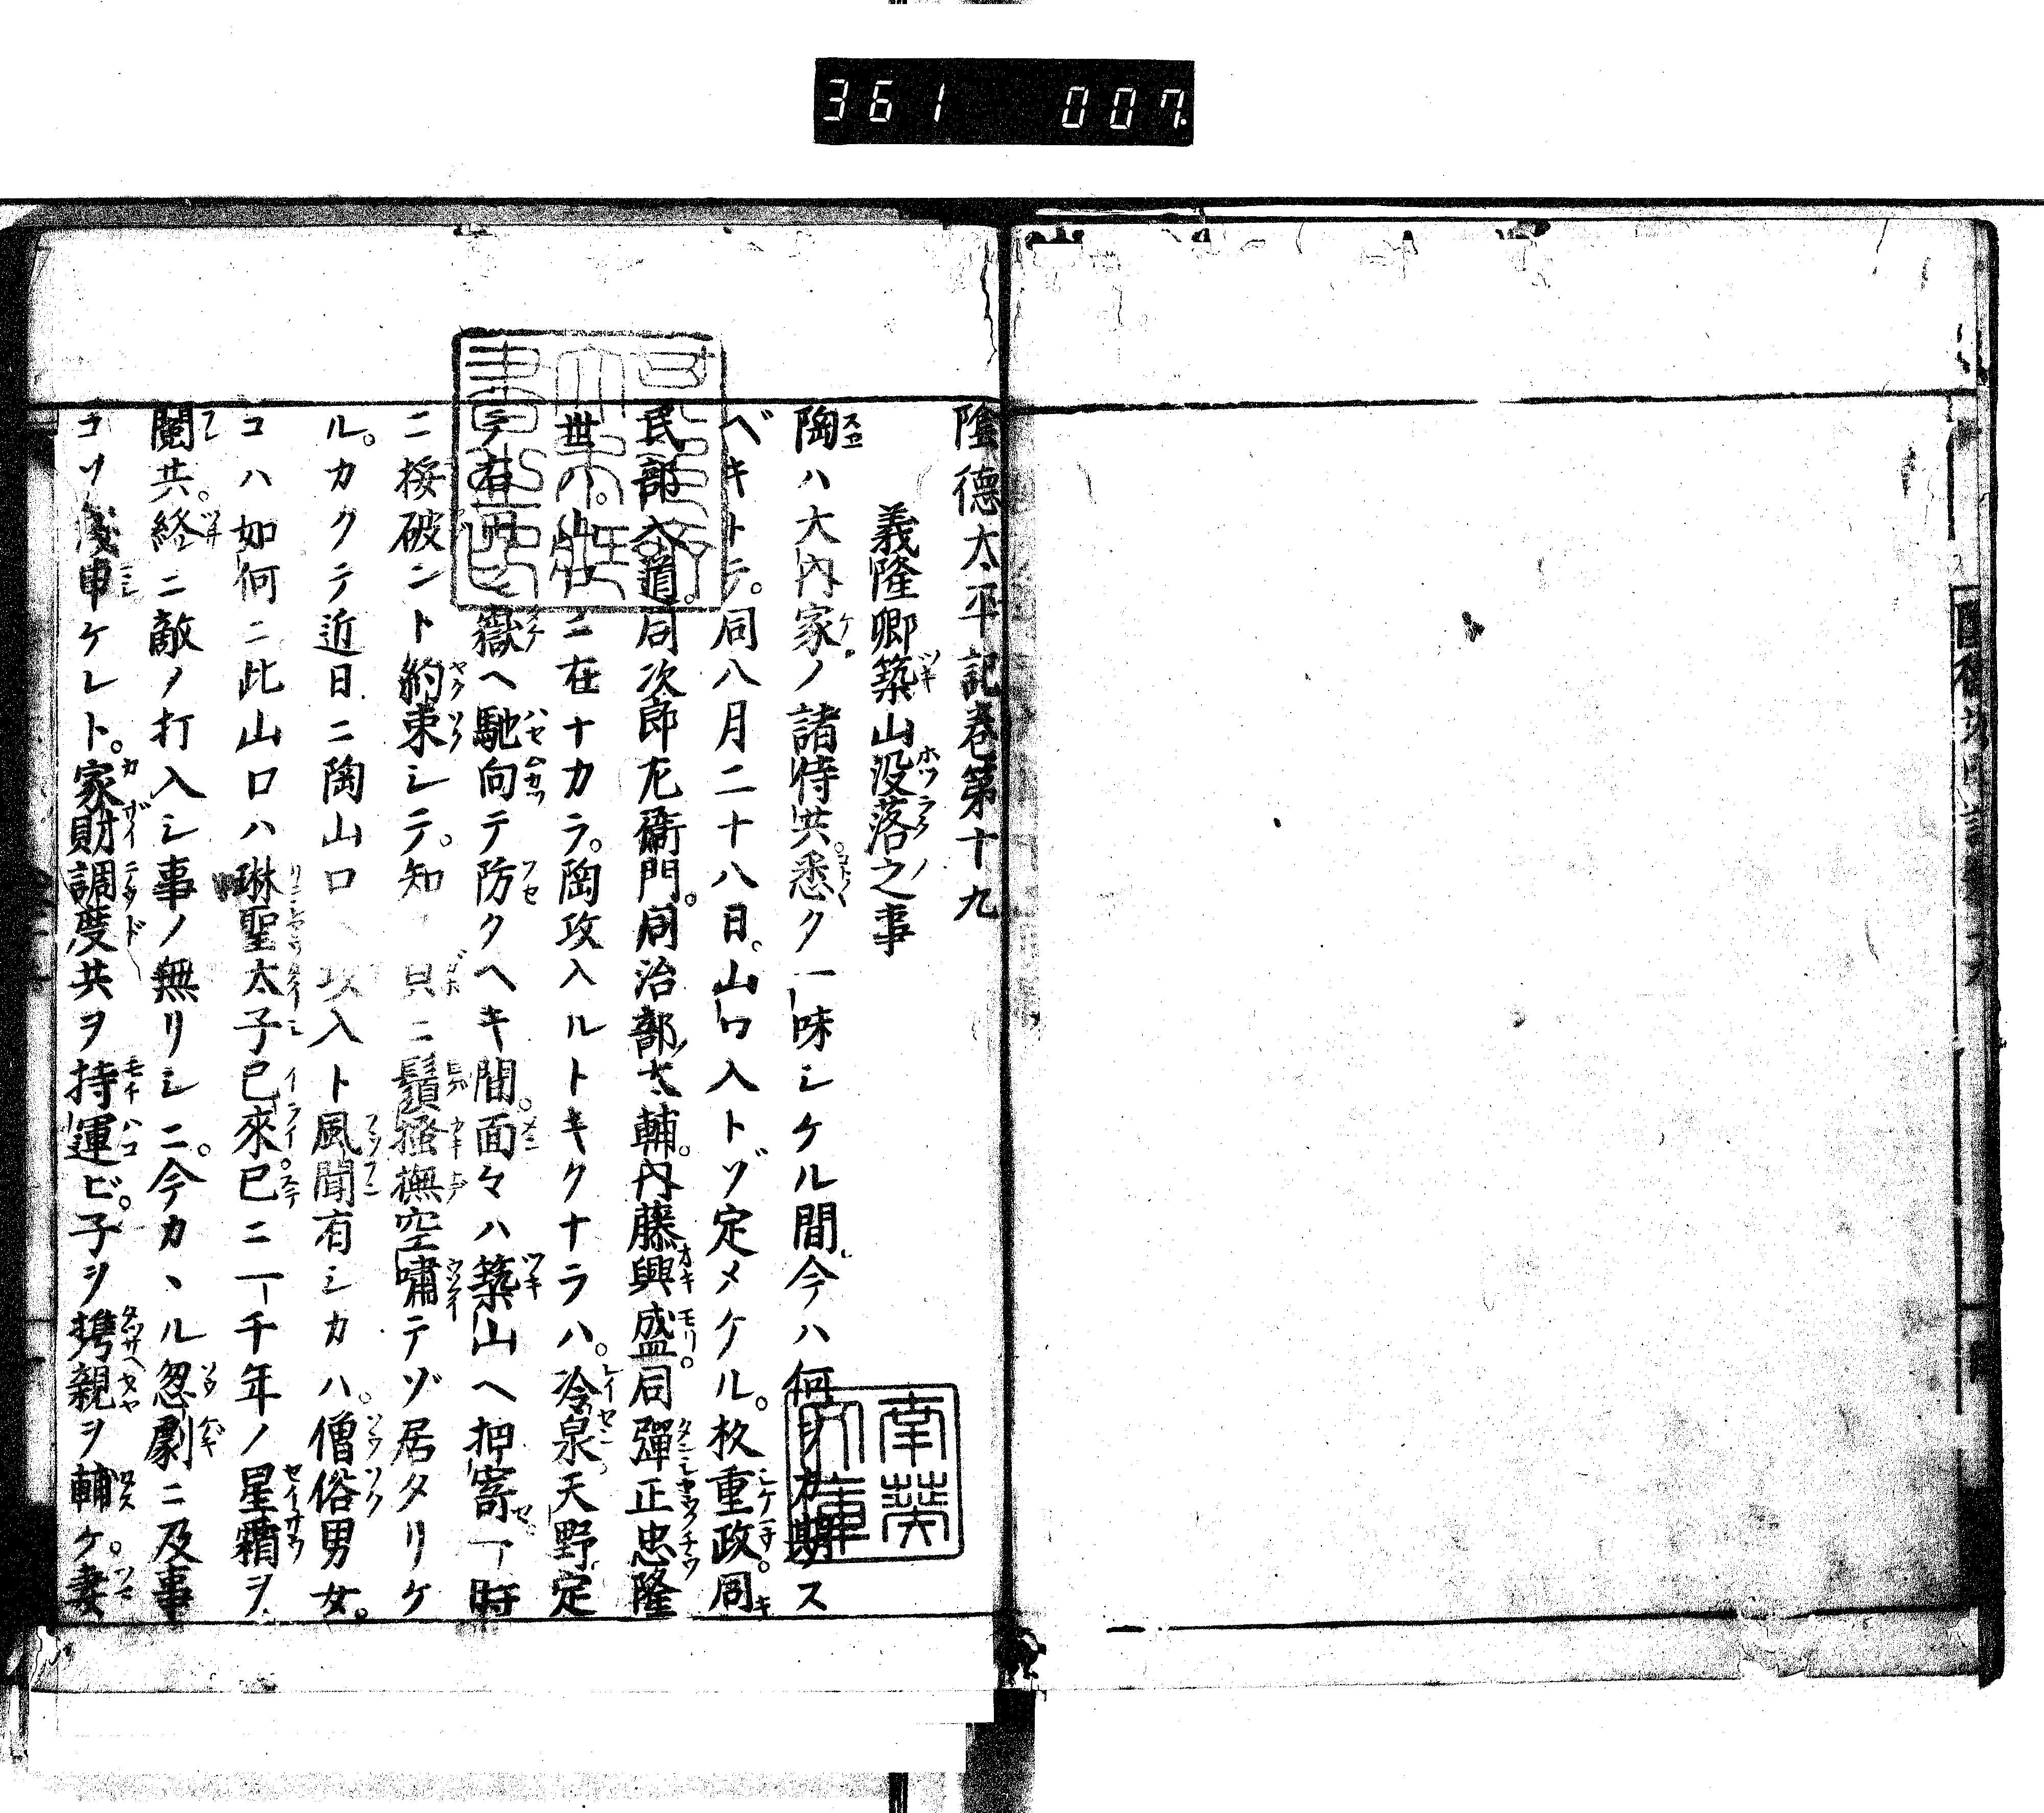 361 007
陰德太平記卷第十九
義隆卿築山没落之事
陶ハ大内家ノ諸侍共。悉ク一味シケル間。今ハ何ヲカ期ス
ベキトテ。同八月二十八日。山口入トゾ定メケル。杦重政。同
民部入道。同次郎左衞門。同治部太輔。内藤興盛。同彈正忠隆
世ハ。山ニ在ナカラ。陶攻入ルトキクナラハ。冷泉天野定
テ嶽ヘ馳向テ防クヘキ間。面々ハ築山ヘ押寄一時
ニ按破ント約束シテ。知 ニ鬚搔撫空嘯テゾ居タリケ
ル。カクテ近日ニ陶山口 攻入ト風聞有シカハ。僧俗男女。
コハ如何ニ此山口ハ琳聖太子已來。已ニ一千年ノ星霜ヲ
閲共。終ニ敵ノ打入シ事ノ無リシニ。今カヽル怱劇ニ及事
コソ淺申ケレト。家財調度共ヲ持運ビ。子ヲ携親ヲ輔ケ。妻